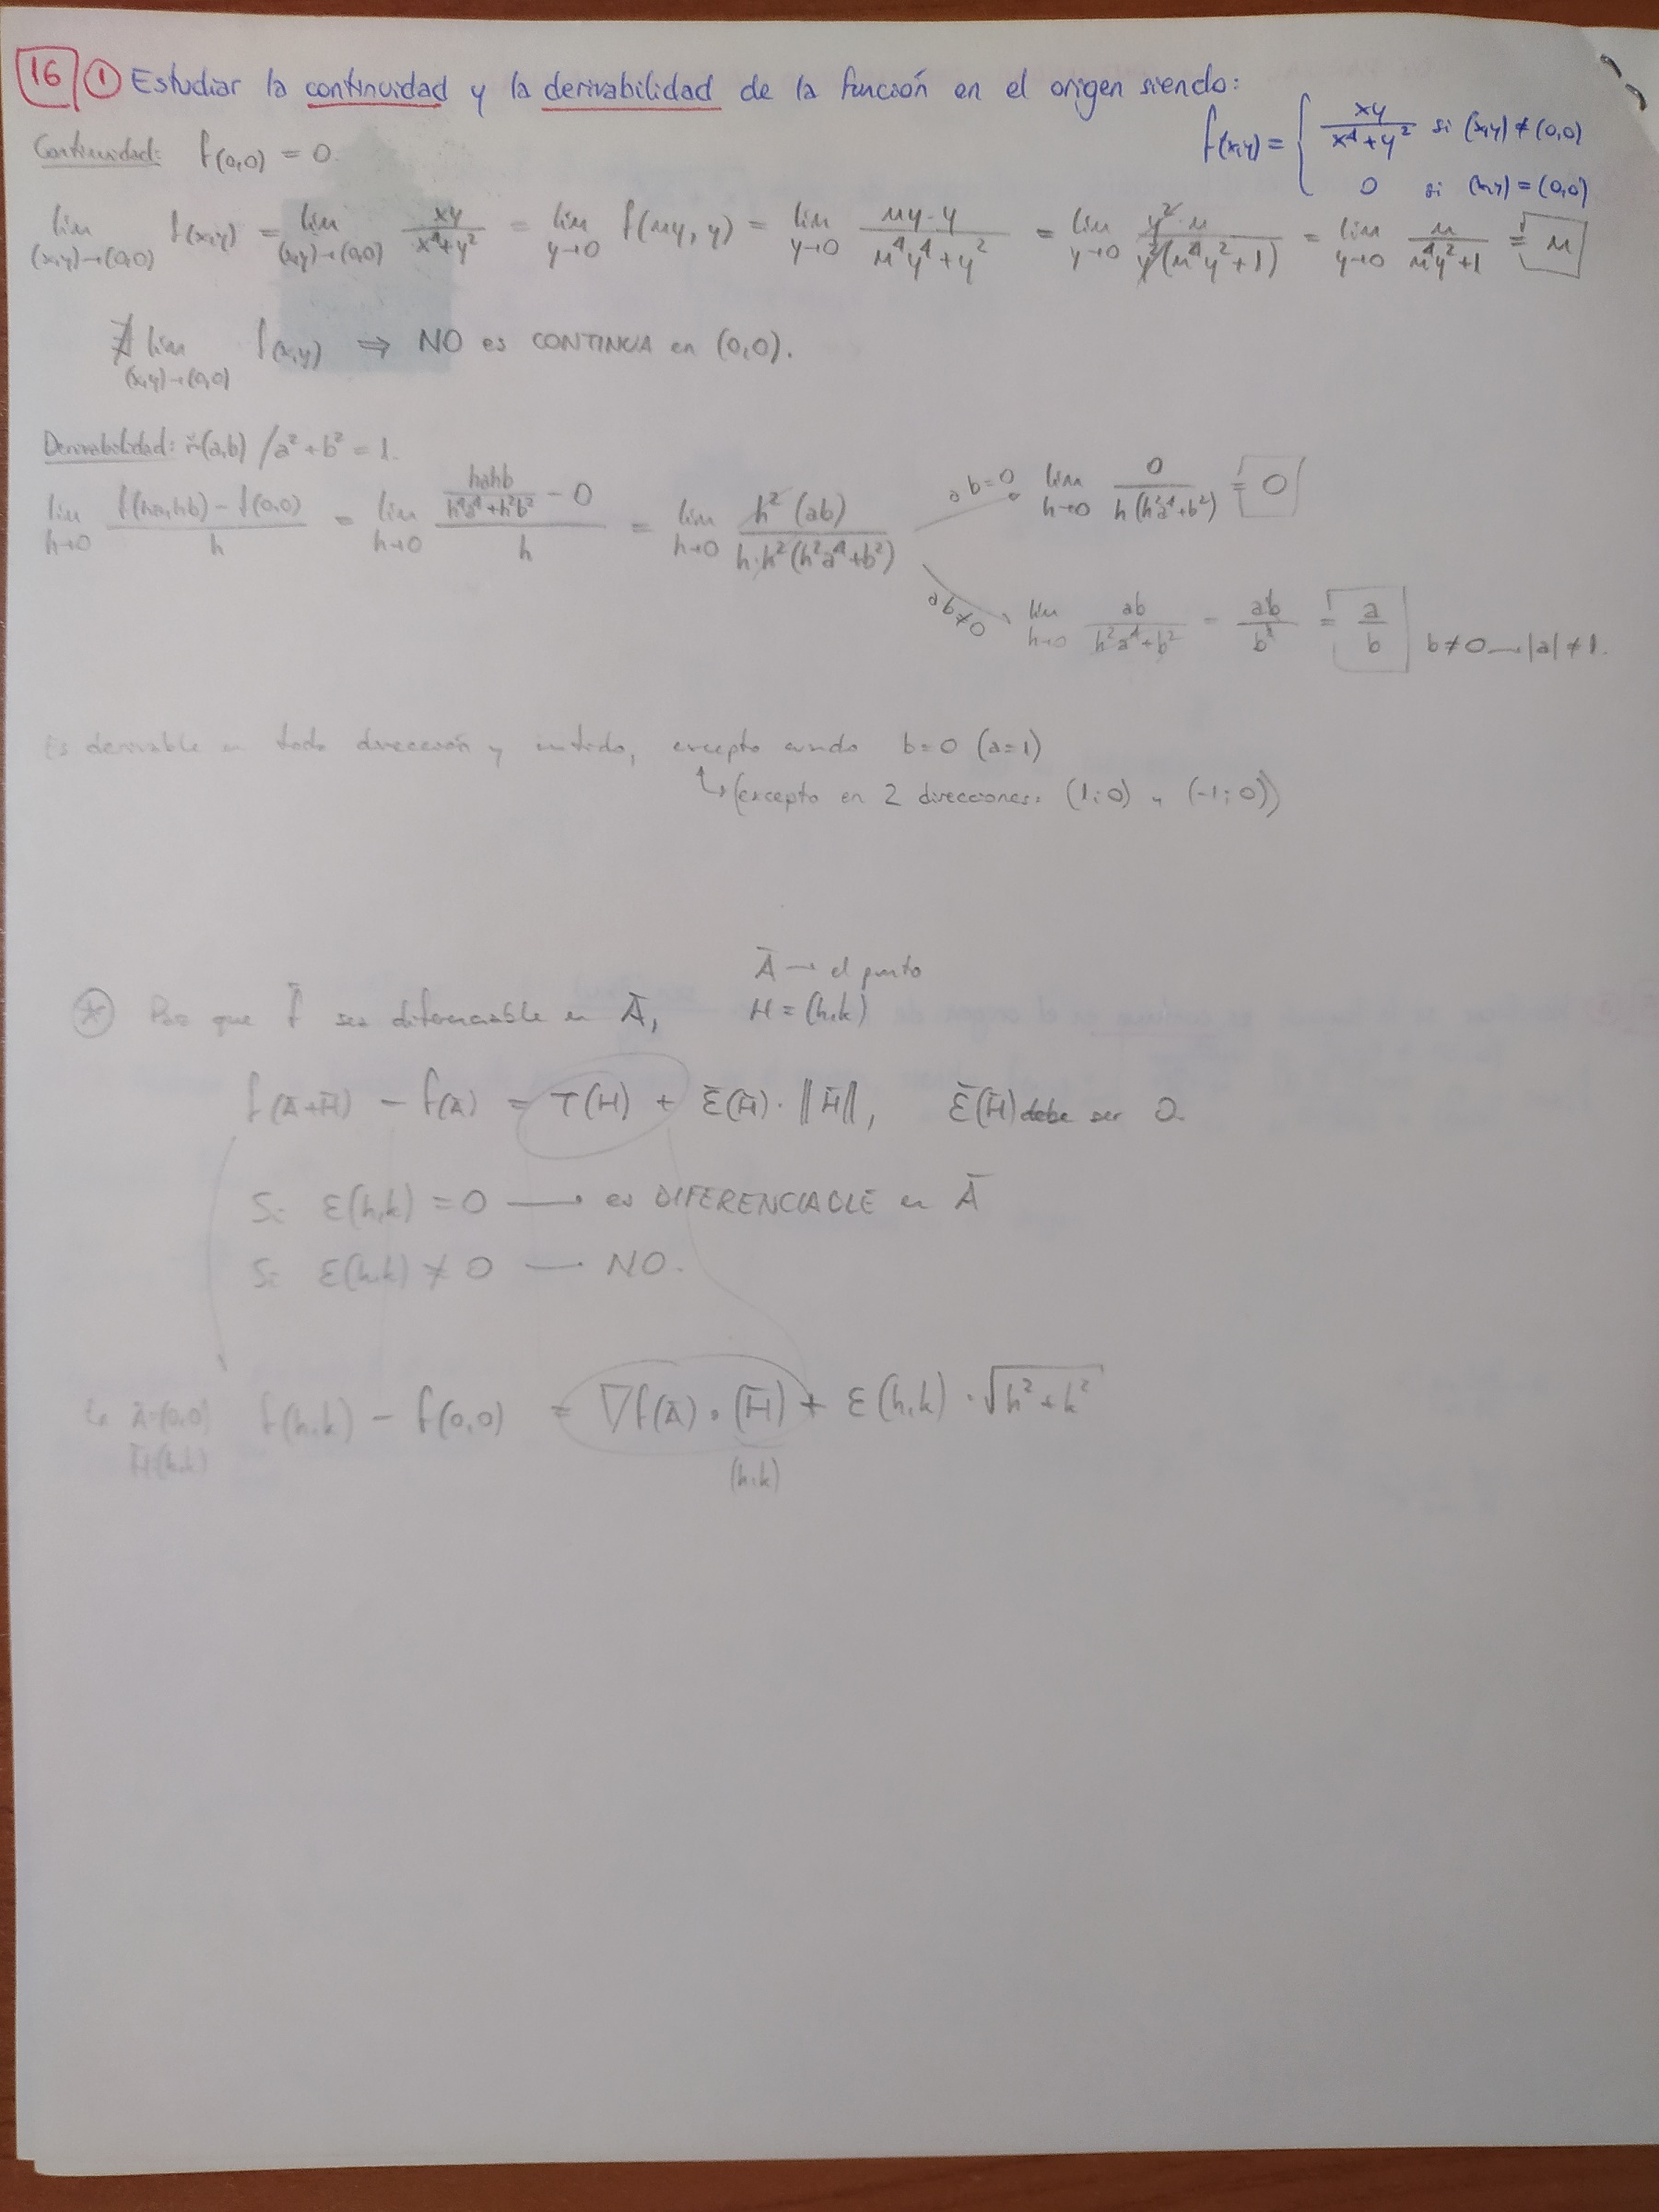 16 ① Estudiar la continuidad y la derivabilidad de la función en el origen siendo:
f(x,y) = { xy / (x⁴+y²) si (x,y) ≠ (0,0)
0 si (x,y) = (0,0)
Continuidad: f(0,0) = 0.
lim (x,y)→(0,0) f(x,y) = lim (x,y)→(0,0) xy / (x⁴+y²) = lim y→0 f(my, y) = lim y→0 my·y / (m⁴y⁴+y²) = lim y→0 y²·m / y²(m⁴y²+1) = lim y→0 m / (m⁴y²+1) = m
∄ lim (x,y)→(0,0) f(x,y) ⇒ NO es CONTINUA en (0,0).
Derivabilidad: (a,b) / a²+b² = 1.
lim h→0 (f(ha,hb) – f(0,0)) / h = lim h→0 (hahb / (h⁴a⁴+h²b²) – 0) / h = lim h→0 h²(ab) / h·h²(h²a⁴+b²)
ab=0 lim h→0 0 / h(h²a⁴+b²) = 0
ab≠0 lim h→0 ab / (h²a⁴+b²) = ab / b² = a / b b≠0 → |a| ≠ 1.
Es derivable en toda dirección y sentido, excepto cuando b=0 (a=1)
↳ (excepto en 2 direcciones: (1;0) y (-1;0))
Ā → el punto
⊛ Para que f̄ sea diferenciable en Ā, H = (h,k)
f(Ā+H̄) – f(Ā) = T(H) + Ē(H̄)·‖H̄‖, Ē(H̄) debe ser 0.
Si Ɛ(h,k) = 0 → es DIFERENCIABLE en Ā
Si Ɛ(h,k) ≠ 0 — NO.
↳ Ā=(0,0) f(h,k) – f(0,0) = ∇f(Ā)·(H̄) + Ɛ(h,k)·√(h²+k²)
H̄(h,k) (h,k)